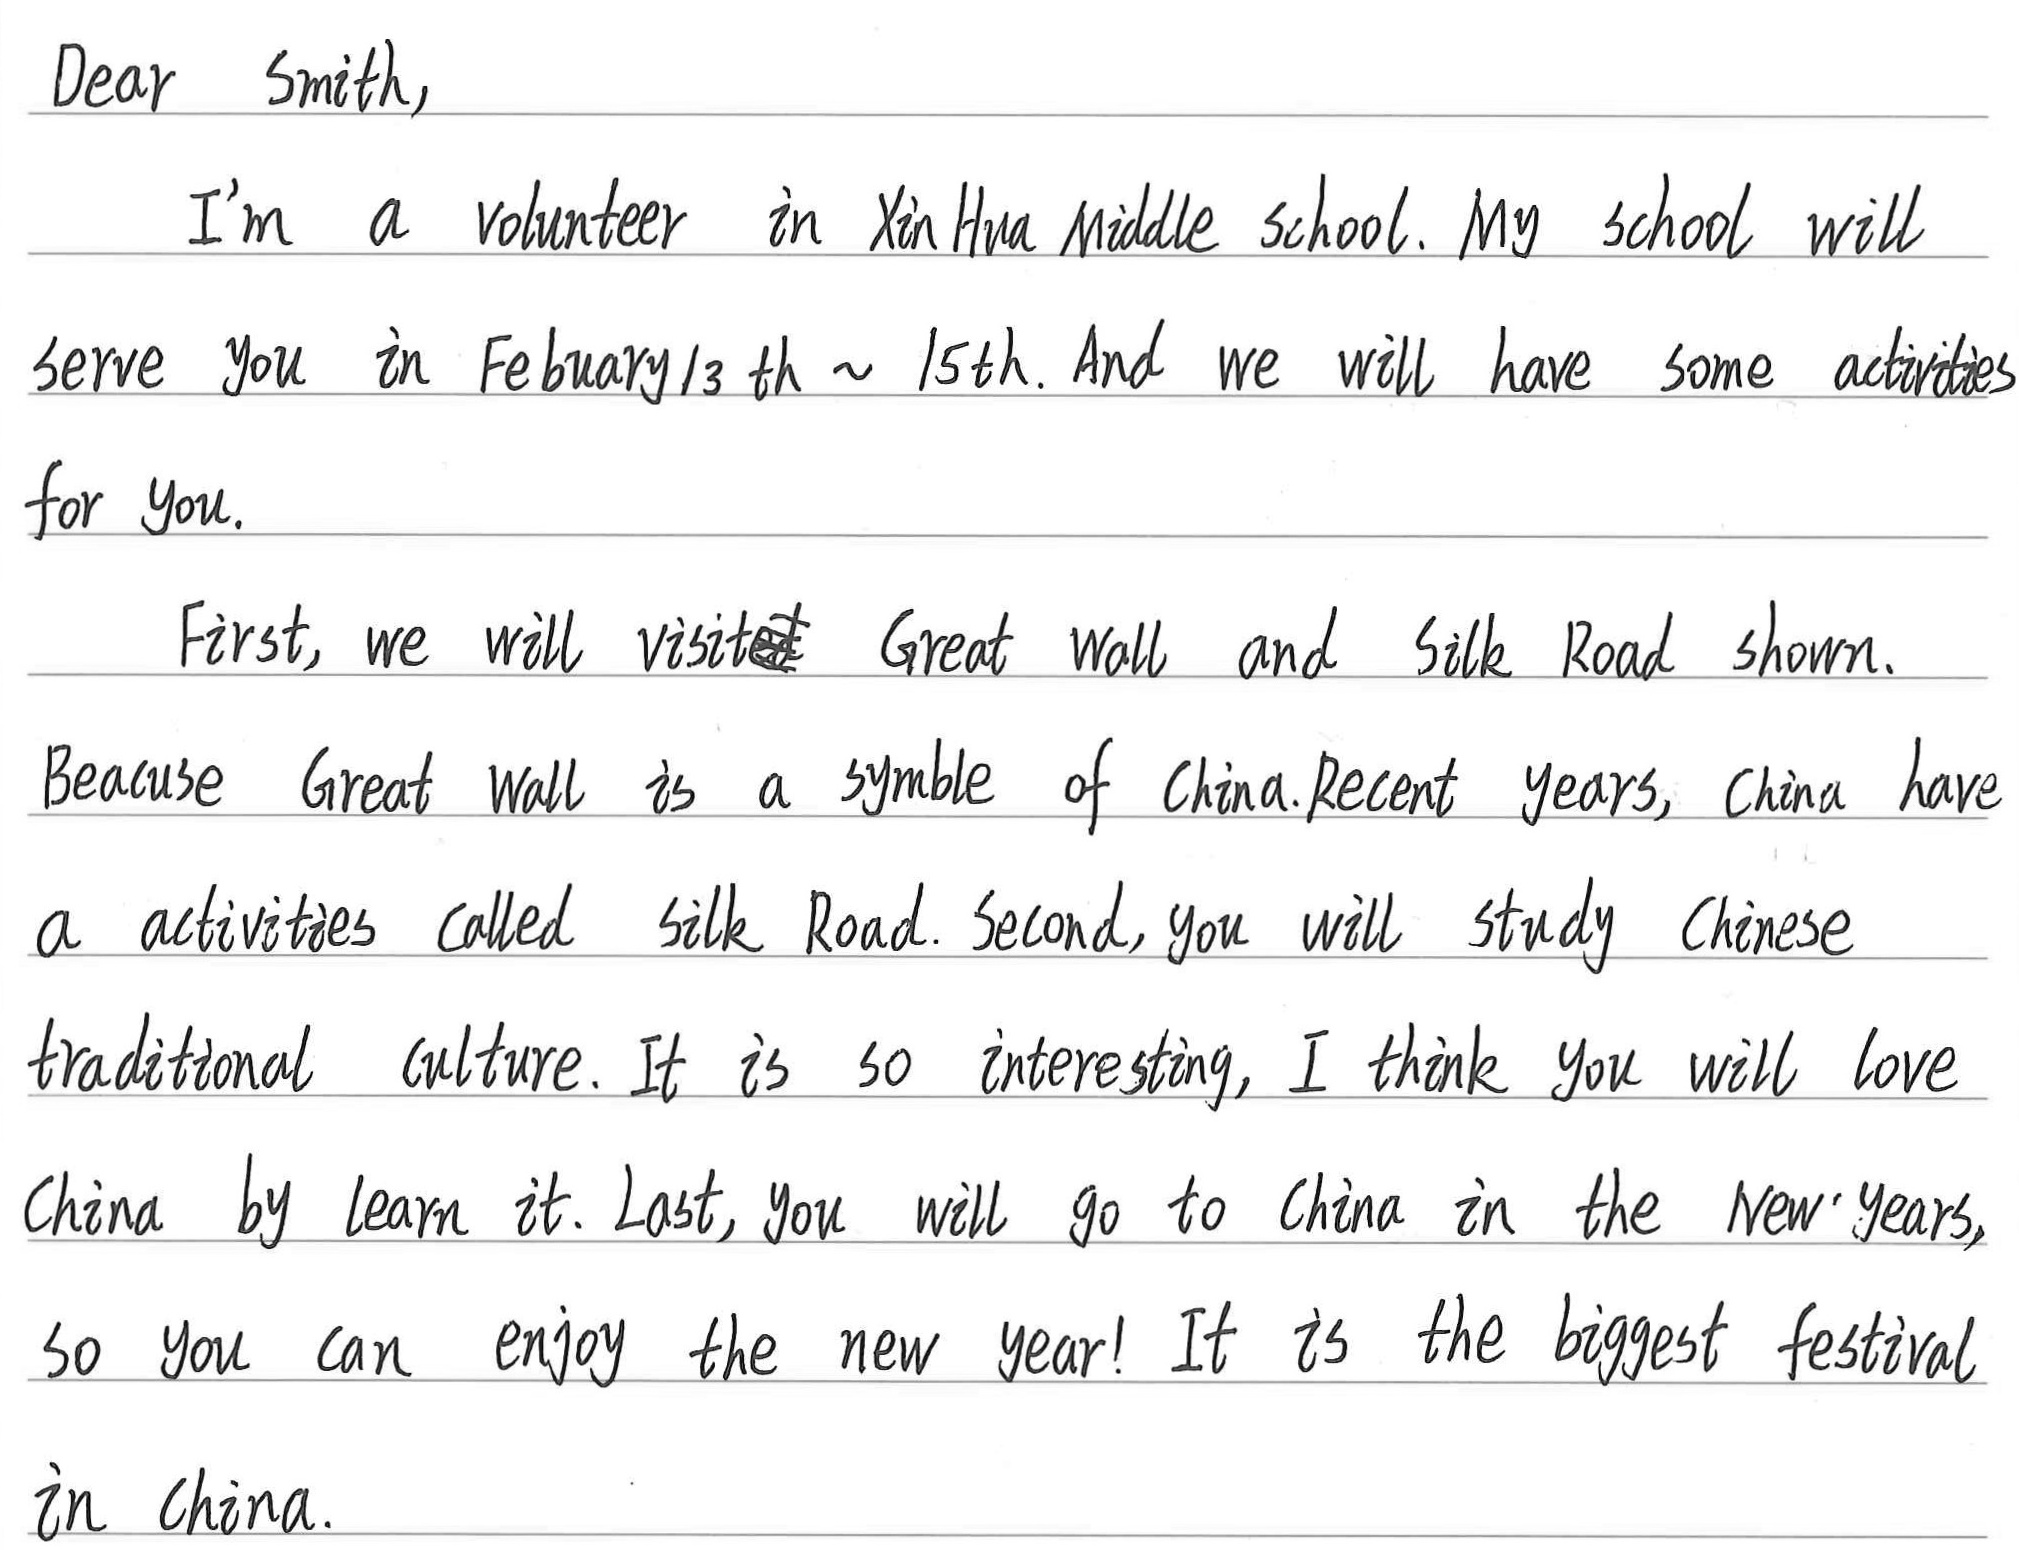 Dear Smith,
I'm a volunteer in Xin Hua Middle school. My school will
serve you in Febuary 13 th ~ 15th. And we will have some activities
for you.
First, we will visit Great Wall and Silk Road shown.
Beacuse Great Wall is a symble of China. Recent years, China have
a activities called Silk Road. Second, you will study Chinese
traditional culture. It is so interesting, I think you will love
China by learn it. Last, you will go to China in the New years,
so you can enjoy the new year! It is the biggest festival
in China.